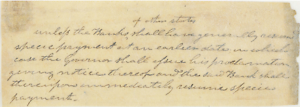 of other states
unless the Banks, shall have generally resumed
specie payment at an earlier date, in which
case the Governor shall issue his proclamation
giving notice thereof and the said Bank shall
thereupon immediately resume specie
payment.